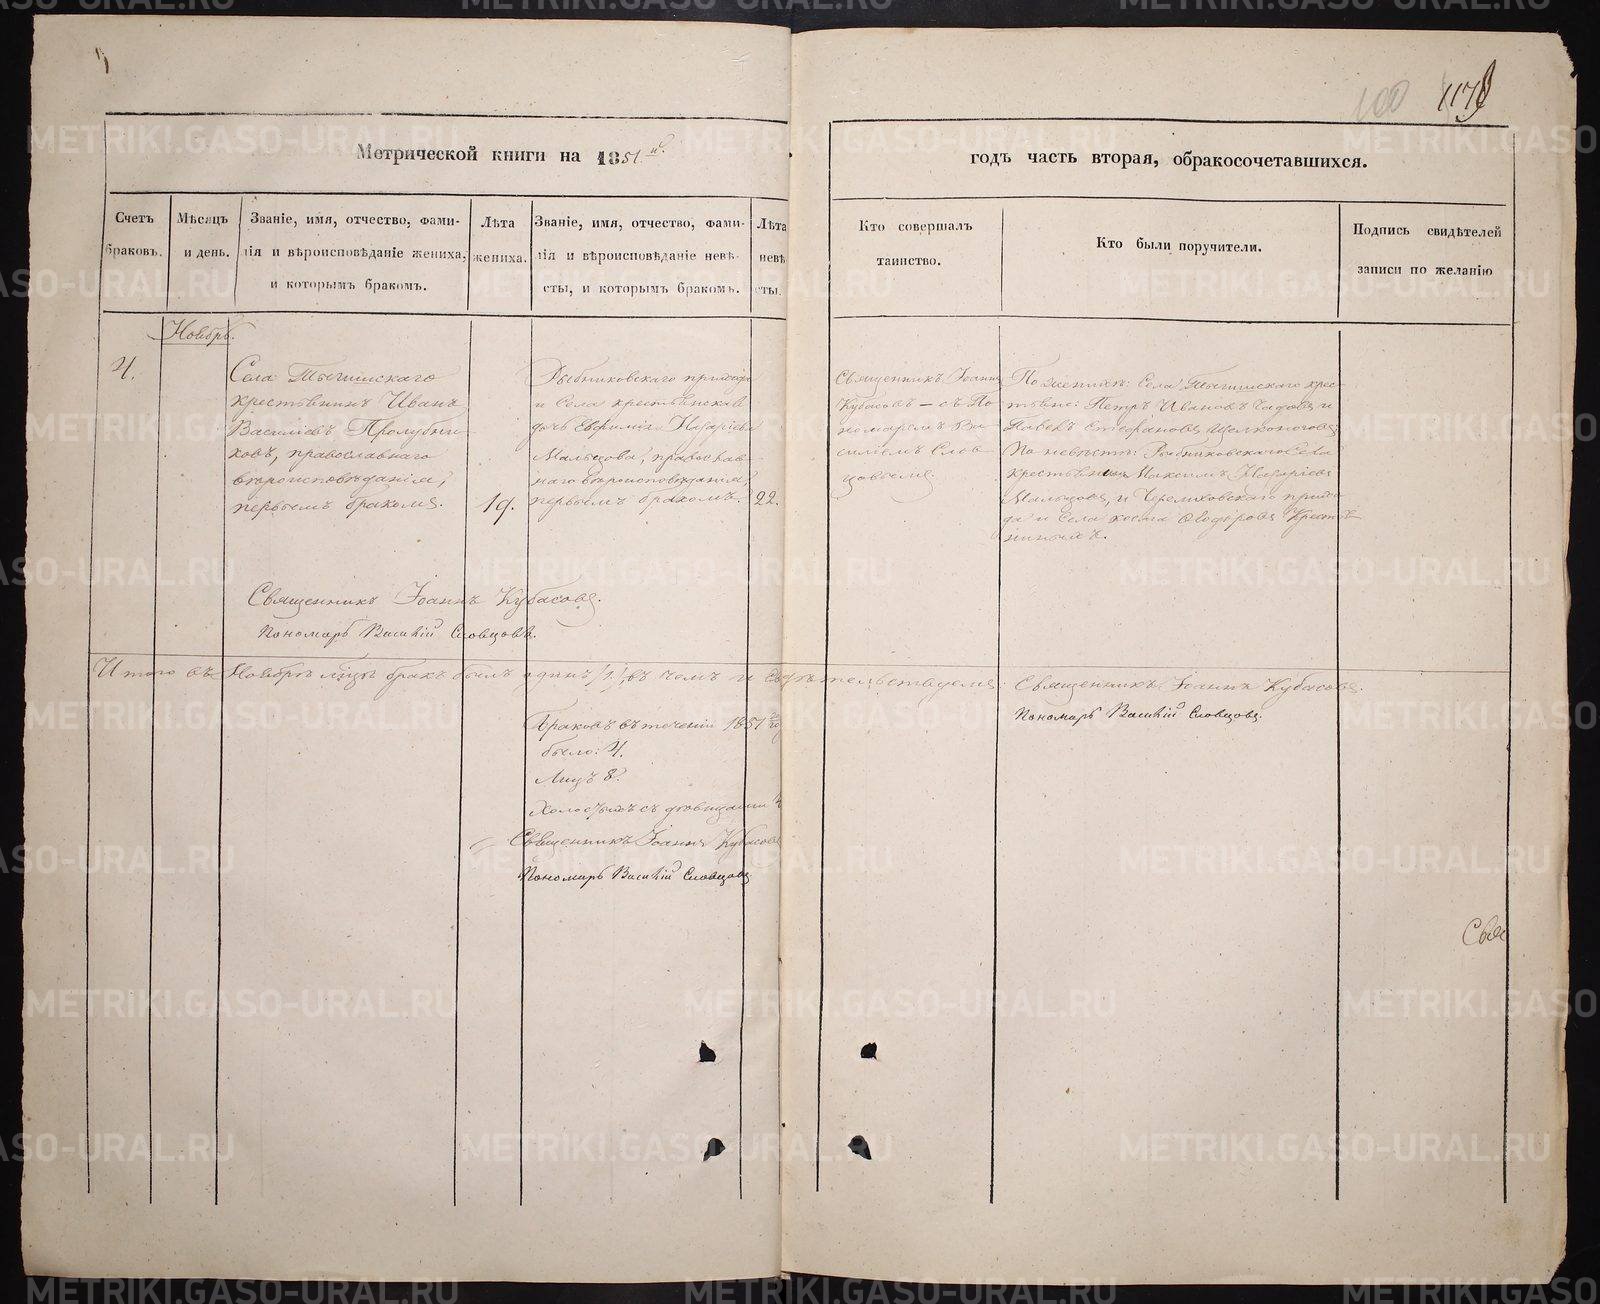 100 1179
Метрической книги на 1851й.
годъ часть вторая, обракосочетавшихся.
Счетъ браковъ.
Мѣсяцъ и день.
Званіе, имя, отчество, фами-
лія и вѣроисповѣданіе жениха,
и которымъ бракомъ.
Лѣта
жениха.
Званіе, имя, отчество, фами-
лія и вѣроисповѣданіе невѣ-
сты, и которымъ бракомъ.
Лѣта
невѣ
сты.
Кто совершалъ
таинство.
Кто были поручители.
Подпись свидѣтелей
записи по желанію
Ноябрь.
4.
Села Тыгишскаго
крестьянинъ Иванъ
Василіевъ Пролубни-
ковъ, православнаго
вѣроисповѣданія,
первымъ бракомъ.
19.
Рыбниковскаго прихода
и Села крестьянская
дочь Евфимія Назаріева
Мальцова, православ-
наго вѣроисповѣданія,
первымъ бракомъ.
22.
Священникъ Іоаннъ
Кубасовъ — съ По-
номаремъ Ва-
силіемъ Слов-
цовымъ.
По женихѣ: Села Тыгишскаго крес-
тьяне: Петръ Ивановъ и
Павелъ Стефановъ
По невѣстѣ: Рыбниковскаго Села
крестьянинъ Максимъ Назаріевъ
Мальцовъ, и Черемховскаго прихо-
да и Села Козма Ѳедоровъ
Священникъ Іоаннъ Кубасовъ.
Пономарь Василій Словцовъ.
Итого въ Ноябрѣ мцѣ бракъ былъ одинъ /1./, въ чемъ и свидѣтельствуемъ:
Священникъ Іоаннъ Кубасовъ.
Пономарь Василій Словцовъ.
Браковъ въ теченіи 1851 го
было: 4.
Лицъ 8.
Холостыхъ съ дѣвицами 4
Священникъ Іоаннъ Кубасовъ
Пономарь Василій Словцовъ
Свя
METRIKI.GASO-URAL.RU